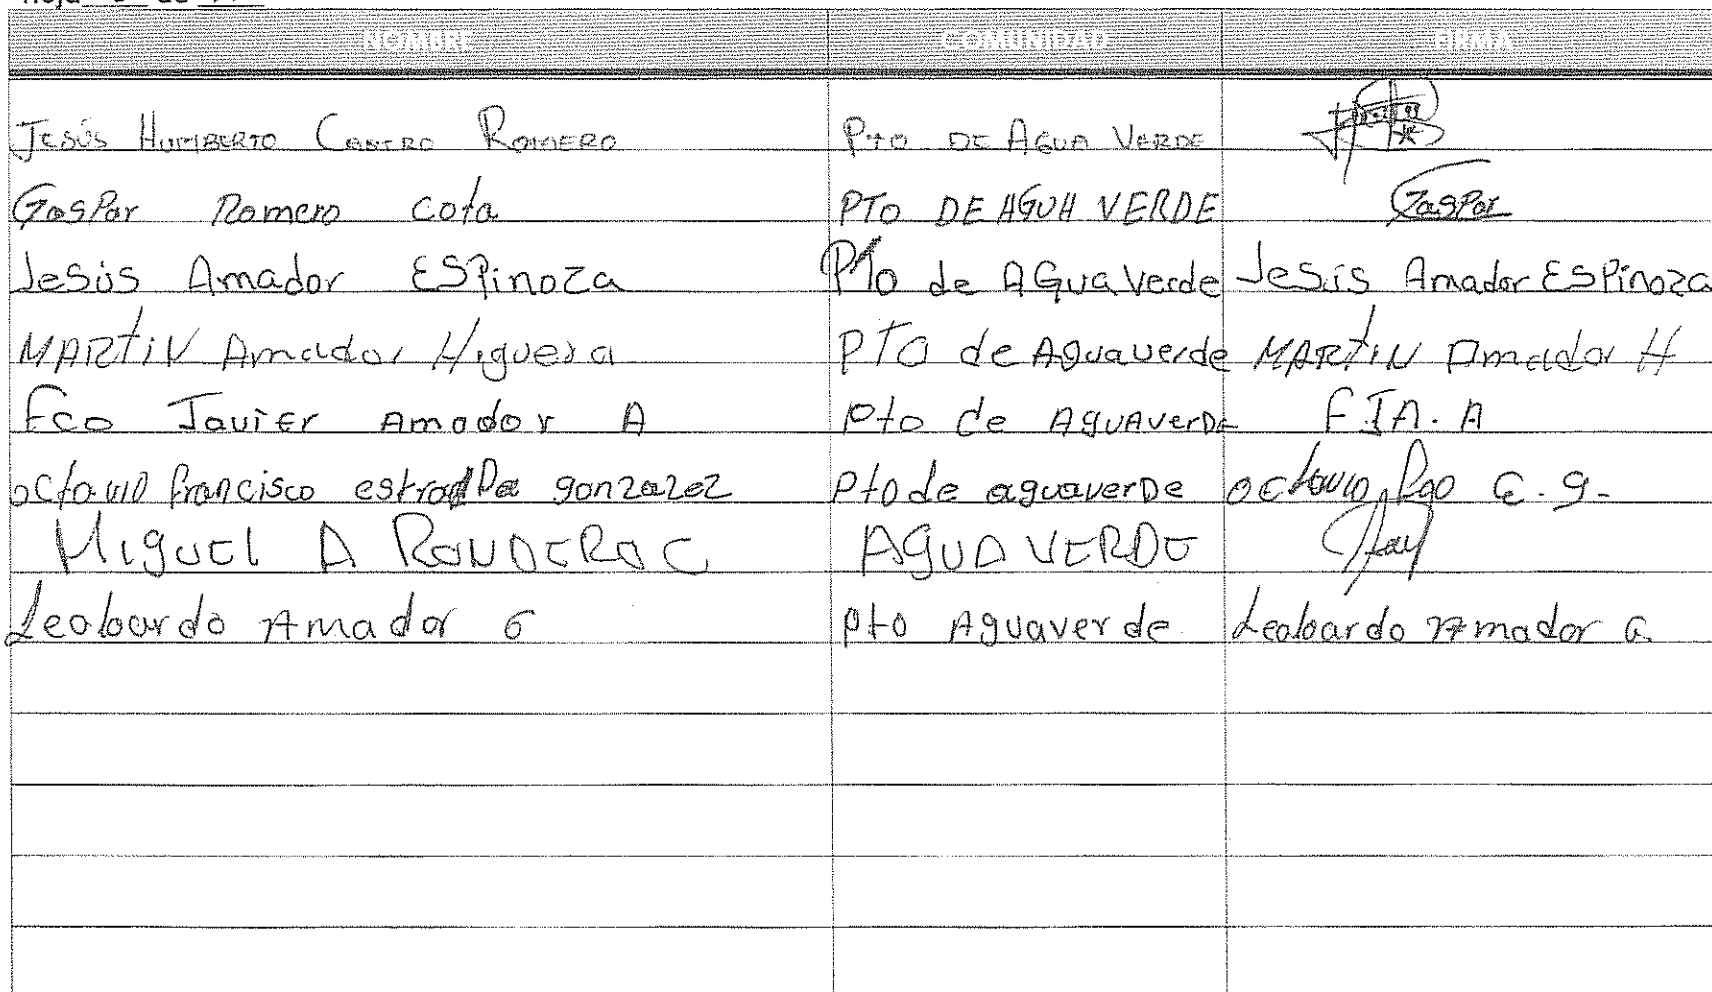 NOMBRE COMUNIDAD FIRMA
JESÚS HUMBERTO CASTRO ROMERO PTO DE AGUA VERDE
GasPar Romero cota PTO DE AGUA VERDE GasPar
JeSús Amador ESPinoza PTo de AGua Verde JeSús Amador ESPinoza
MARTIN Amador Higuera PTO de Aguaverde MARTIN Amador H
Fco Javier Amador A Pto de AguAverDe F.JA.A
octavio francisco estraDa gonzalez Pto de aguaverDe octavio fco E.g.
MIguel A RoMDERO C AGUA VERDE
Leobardo Amador G pto Aguaverde Leobardo Amador G.